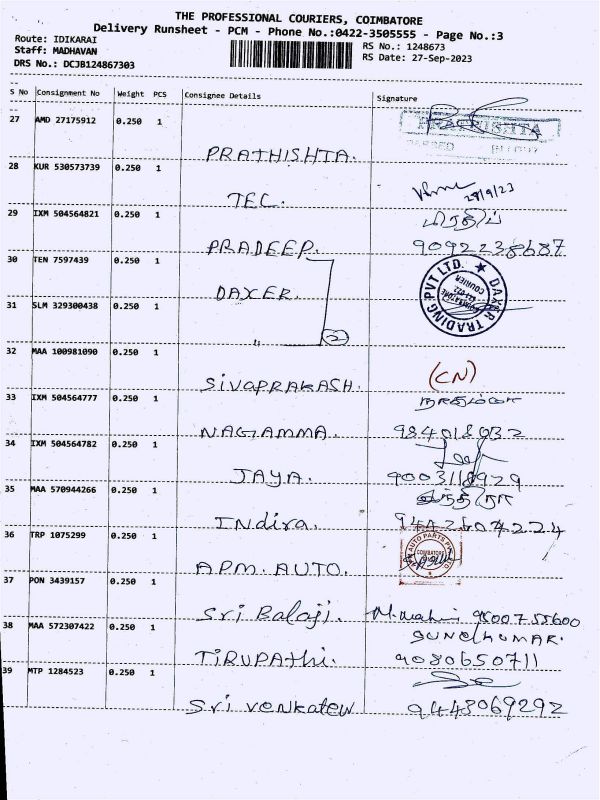 THE PROFESSIONAL COURIERS, COIMBATORE
Delivery Runsheet - PCM - Phone No.:0422-3505555 - Page No.:3
Route: IDIKARAI
Staff: MADHAVAN
DRS No.: DCJB124867303
RS No.: 1248673
RS Date: 27-Sep-2023
S No Consignment No Weight PCS Consignee Details Signature
27 AMD 27175912 0.250 1
PRATHISHTA.
28 KUR 530573739 0.250 1
TEC. 27/9/23
29 IXM 504564821 0.250 1
PRADEEP. 9092238687
30 TEN 7597439 0.250 1
DAXER. DAXER TRADING PVT LTD.
31 SLM 329300438 0.250 1
" 2
32 MAA 100981090 0.250 1
SIVAPRAKASH. (CN)
33 IXM 504564777 0.250 1
NAGAMMA. 984018032
34 IXM 504564782 0.250 1
JAYA. 9003118929
35 MAA 570944266 0.250 1
INdira. 9442604224
36 TRP 1075299 0.250 1
APM. AUTO. AUTO PARTS COIMBATORE
37 PON 3439157 0.250 1
Sri Balaji. 9500755600
38 MAA 572307422 0.250 1
SUNCHUMAR.
TIRUPAThi. 9080650711
39 MTP 1284523 0.250 1
Sri VENKATEW 9443069292